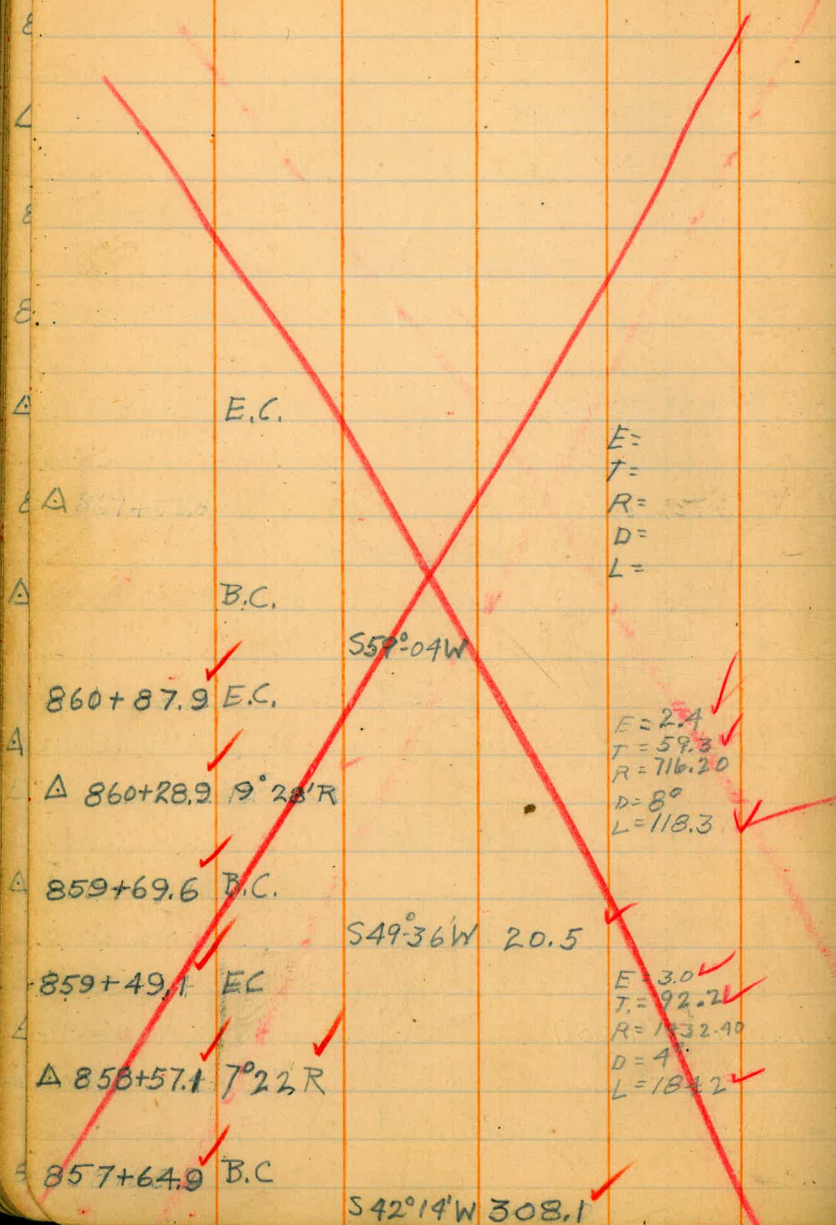 E.C.
E=
T=
R=
D=
L=
△
B.C.
S59°-04W
860+87.9 E.C.
E=2.4
T=59.3
R=716.20
D=8°
L=118.3
△ 860+28.9 9°28'R
859+69.6 B.C.
S49°-36'W 20.5
859+49.1 EC
E=3.0
T=92.2
R=1432.40
D=4°
L=184.2
△ 858+57.1 7°22R
857+64.9 B.C
S42°14'W 308.1